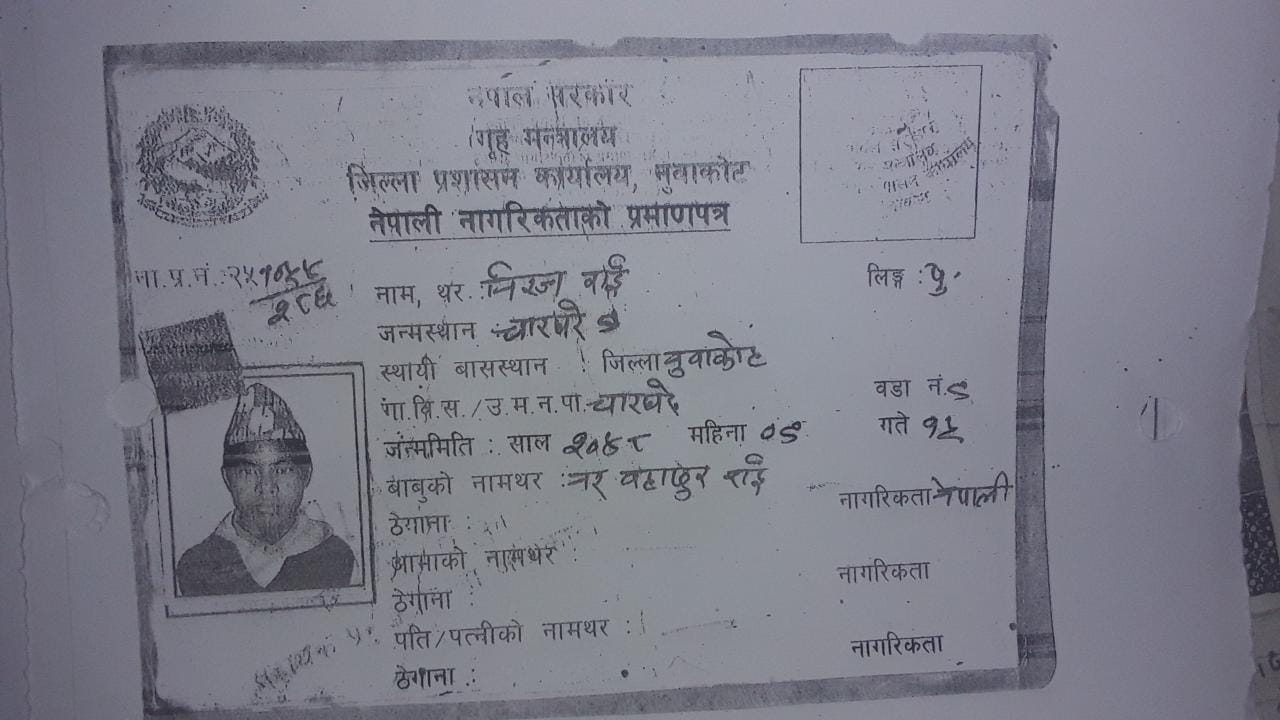 नेपाल सरकार
गृह मन्त्रालय
जिल्ला प्रशासन कार्यालय, नुवाकोट
नेपाली नागरिकताको प्रमाणपत्र
ना.प्र.नं.:
नाम, थर.: राई लिङ्ग : पु.
जन्मस्थान चारघरे
स्थायी बासस्थान : जिल्ला नुवाकोट
गा.वि.स./उ.म.न.पा. चारघरे वडा नं. ९
जन्ममिति : साल २०४८ महिना ०९ गते १५
बाबुको नामथर : नर बहादुर राई
नागरिकता नेपाली
ठेगाना :
आमाको नामथर :
नागरिकता
ठेगाना :
पति/पत्नीको नामथर :
नागरिकता
ठेगाना :